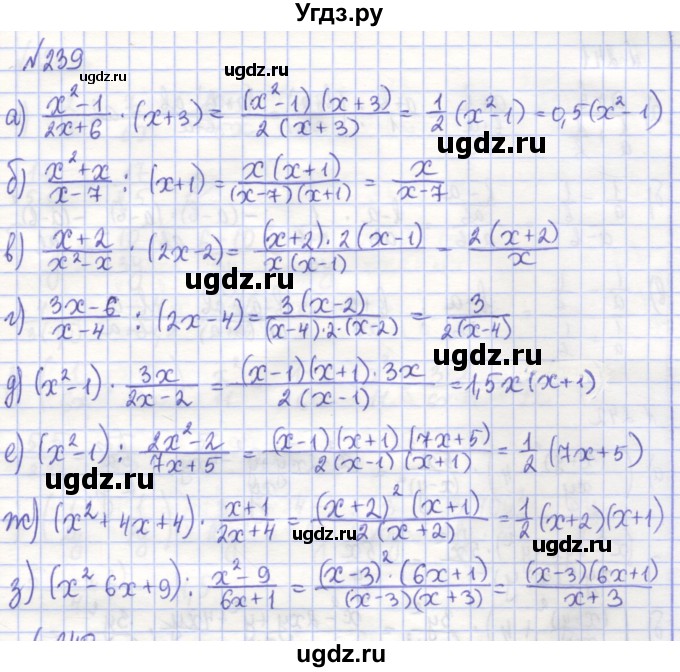 Угдз.ру
№239
ugdz.ru ugdz.ru ugdz.ru
а) (x²-1)/(2x+6) · (x+3) = ((x²-1)(x+3))/(2(x+3)) = 1/2 (x²-1) = 0,5(x²-1)
б) (x²+x)/(x-7) : (x+1) = (x(x+1))/((x-7)(x+1)) = x/(x-7)
в) (x+2)/(x²-x) · (2x-2) = ((x+2)·2(x-1))/(x(x-1)) = (2(x+2))/x
ugdz.ru
г) (3x-6)/(x-4) : (2x-4) = (3(x-2))/((x-4)·2·(x-2)) = 3/(2(x-4))
ugdz.ru
д) (x²-1) · 3x/(2x-2) = ((x-1)(x+1)·3x)/(2(x-1)) = 1,5x(x+1)
ugdz.ru
е) (x²-1) : (2x²-2)/(7x+5) = ((x-1)(x+1)(7x+5))/(2(x-1)(x+1)) = 1/2 (7x+5)
ugdz.ru
ж) (x²+4x+4) · (x+1)/(2x+4) = ((x+2)²(x+1))/(2(x+2)) = 1/2 (x+2)(x+1)
ugdz.ru
з) (x²-6x+9) : (x²-9)/(6x+1) = ((x-3)²·(6x+1))/((x-3)(x+3)) = ((x-3)(6x+1))/(x+3)
ugdz.ru ugdz.ru ugdz.ru